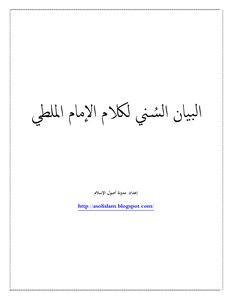 البيان السُني لكلام الإمام الملطي
إعداد: مدونة أصول الإسلام
http://asolislam.blogspot.com/